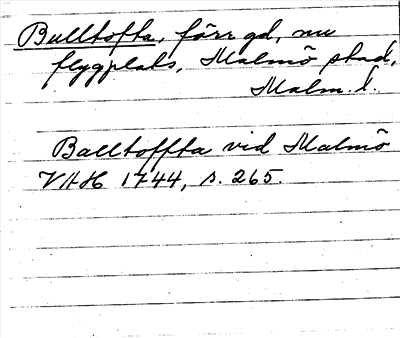 Bulltofta, förr gd, nu
flygplats, Malmö stad,
Malm. l.
Balltoffta vid Malmö
VAH 1744, s. 265.